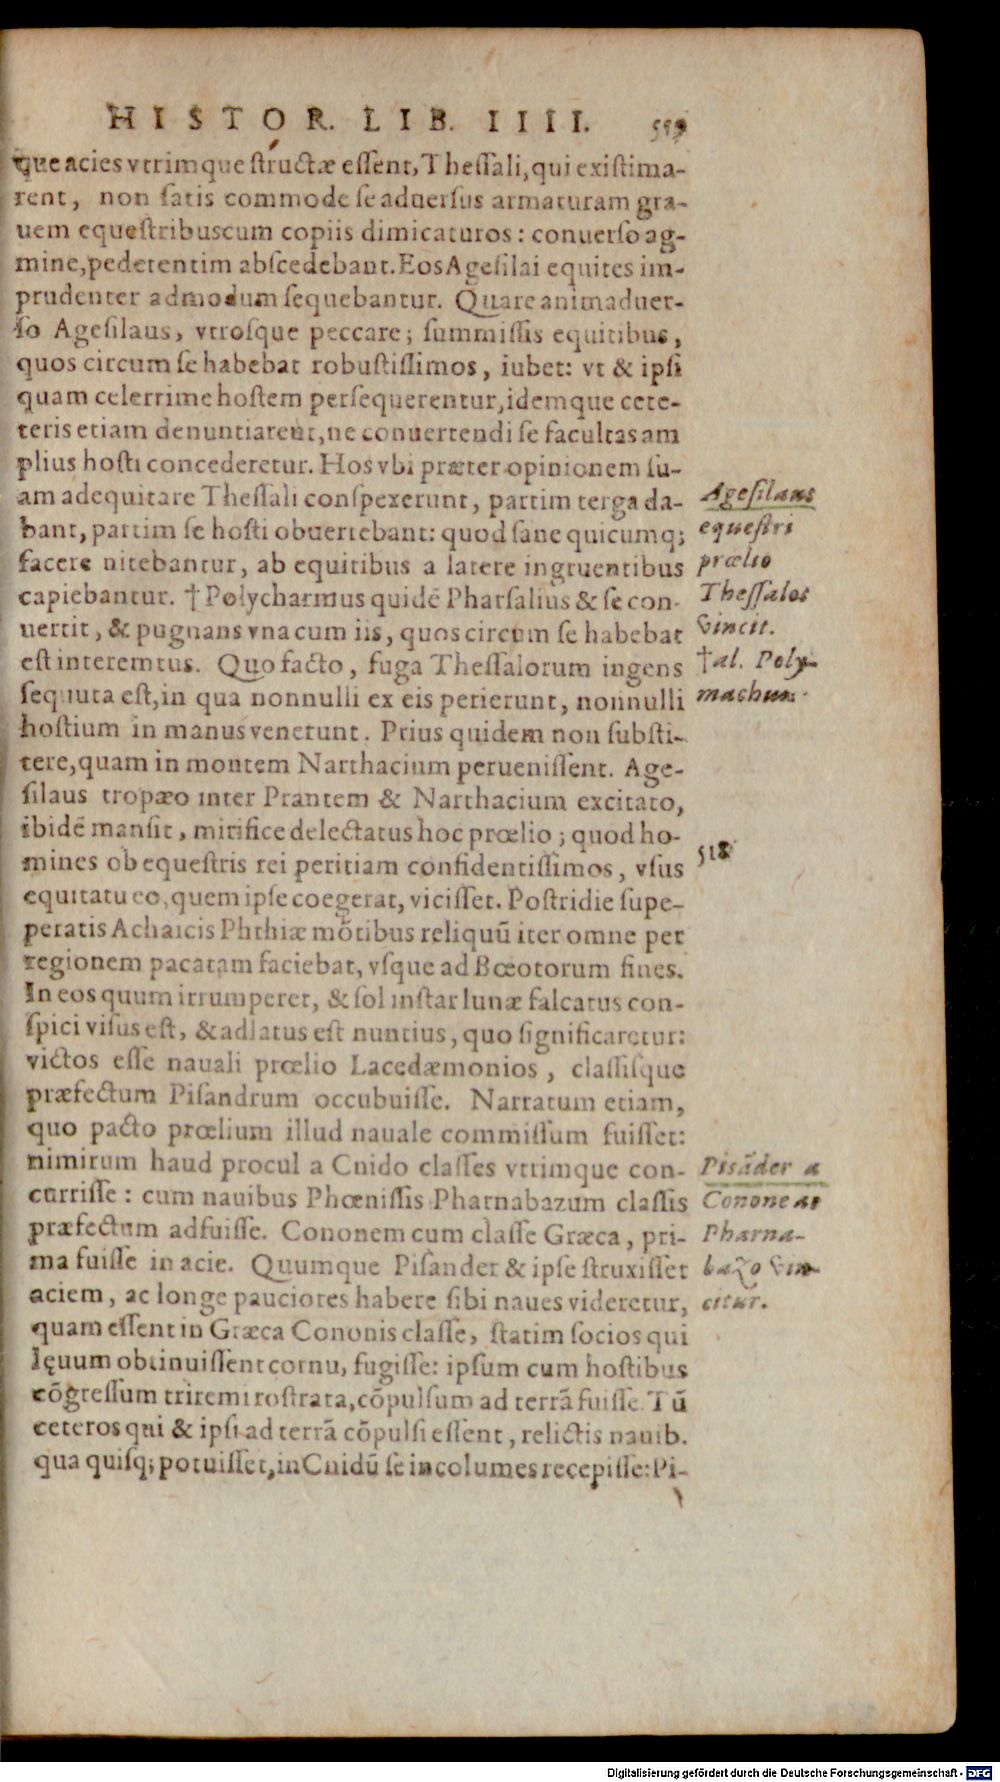 HISTOR. LIB. IIII. 559
que acies vtrimque structæ essent, Thessali, qui existima-
rent, non satis commode se aduersus armaturam gra-
uem equestribuscum copiis dimicaturos: conuerso ag-
mine, pedetentim abscedebant. Eos Agesilai equites im-
prudenter admodum sequebantur. Quare animaduer-
so Agesilaus, vtrosque peccare; summissis equitibus,
quos circum se habebat robustissimos, iubet: vt & ipsi
quam celerrime hostem persequerentur, idemque cete-
teris etiam denuntiarent, ne conuertendi se facultas am
plius hosti concederetur. Hos vbi præter opinionem su-
am adequitare Thessali conspexerunt, partim terga da-
bant, partim se hosti obuertebant: quod sane quicumq;
facere nitebantur, ab equitibus a latere ingruentibus
capiebantur. †Polycharmus quidē Pharsalius & se con-
uertit, & pugnans vna cum iis, quos circum se habebat
est interemtus. Quo facto, fuga Thessalorum ingens
sequuta est, in qua nonnulli ex eis perierunt, nonnulli
hostium in manus venerunt. Prius quidem non substi-
tere, quam in montem Narthacium peruenissent. Age-
silaus tropæo inter Prantem & Narthacium excitato,
ibidē mansit, mirifice delectatus hoc prœlio; quod ho-
mines ob equestris rei peritiam confidentissimos, vsus
equitatu eo, quem ipse coegerat, vicisset. Postridie supe-
peratis Achaicis Phthiæ mōtibus reliquū iter omne per
regionem pacatam faciebat, vsque ad Bœotorum fines.
In eos quum irrumperet, & sol instar lunæ falcatus con-
spici visus est, & adlatus est nuntius, quo significaretur:
victos esse nauali prœlio Lacedæmonios, classisque
præfectum Pisandrum occubuisse. Narratum etiam,
quo pacto prœlium illud nauale commissum fuisset:
nimirum haud procul a Cnido classes vtrimque con-
currisse: cum nauibus Phœnissis Pharnabazum classis
præfectum adfuisse. Cononem cum classe Græca, pri-
ma fuisse in acie. Quumque Pisander & ipse struxisset
aciem, ac longe pauciores habere sibi naues videretur,
quam essent in Græca Cononis classe, statim socios qui
lęuum obtinuissent cornu, fugisse: ipsum cum hostibus
cōgressum triremi rostrata, cōpulsum ad terrā fuisse. Tū
ceteros qui & ipsi ad terrā cōpulsi essent, relictis nauib.
qua quisq; potuisset, in Cnidū se incolumes recepisse: Pi-
Agesilaus
equestri
prœlio
Thessalos
vincit.
†al. Poly-
machus.
518
Pisāder a
Conone ac
Pharna-
bazo vin-
citur.
Digitalisierung gefördert durch die Deutsche Forschungsgemeinschaft - DFG